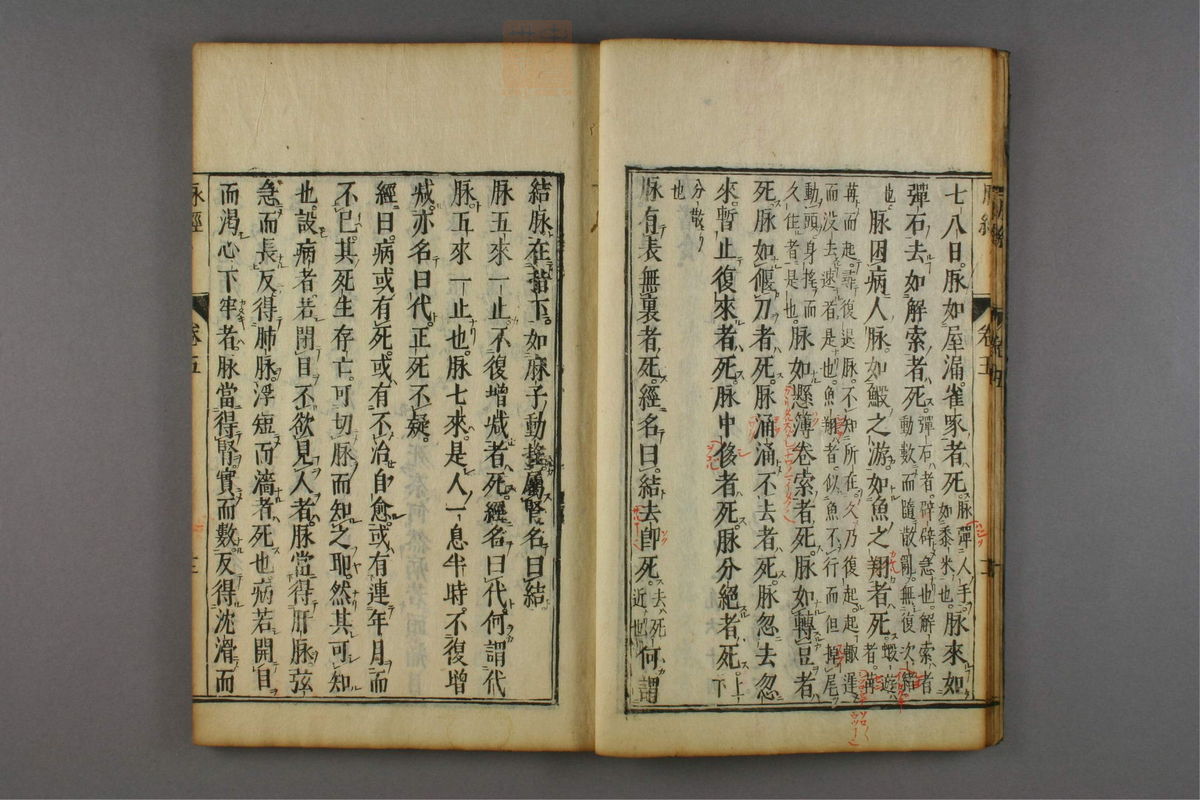 七八日脉如屋漏雀啄者死脉彈人手
如黍米也脉來如
彈石去如解索者死彈石者辟辟急也解索者
動數而隨散亂無復次緒
也脉困病人脉如蝦之游如魚之翔者死蝦遊者
苒苒而起尋復退没不知所在久乃復起起輒遲
而没去速者是也魚翔者似魚不行而但掉尾
動頭身搖而
久住者是也脉如懸簿卷索者死脉如轉豆者
死脉如偃刀者死脉涌涌不去者死脉忽去忽
來暫止復來者死脉中侈者死脉分絕者死上下
分散
也
脉有表無裏者死經名曰結去卽死去死
近也何謂
結脉在指下如麻子動搖屬腎名曰結
脉五來一止不復增减者死經名曰代何謂代
脉五來一止也脉七來是人一息半時不復增
减亦名曰代正死不疑
經曰病或有死或有不治自愈或有連年月而
不已其死生存亡可切脉而知之耶然其可知
也設病者若閉目不欲見人者脉當得肝脉弦
急而長反得肺脉浮短而濇者死也病若開目
而渴心下牢者脉當得腎實而數反得沈滑而
脉經
卷五